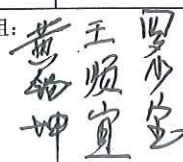 组:
黄坤
王顺宜
罗少宝